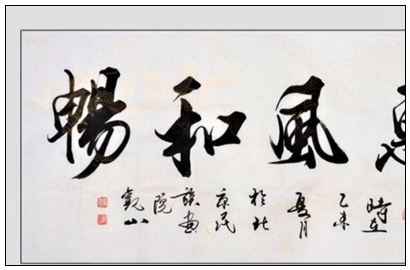 惠風和暢
時在
乙未
夏月
於北
京民
族畫
院
觀山